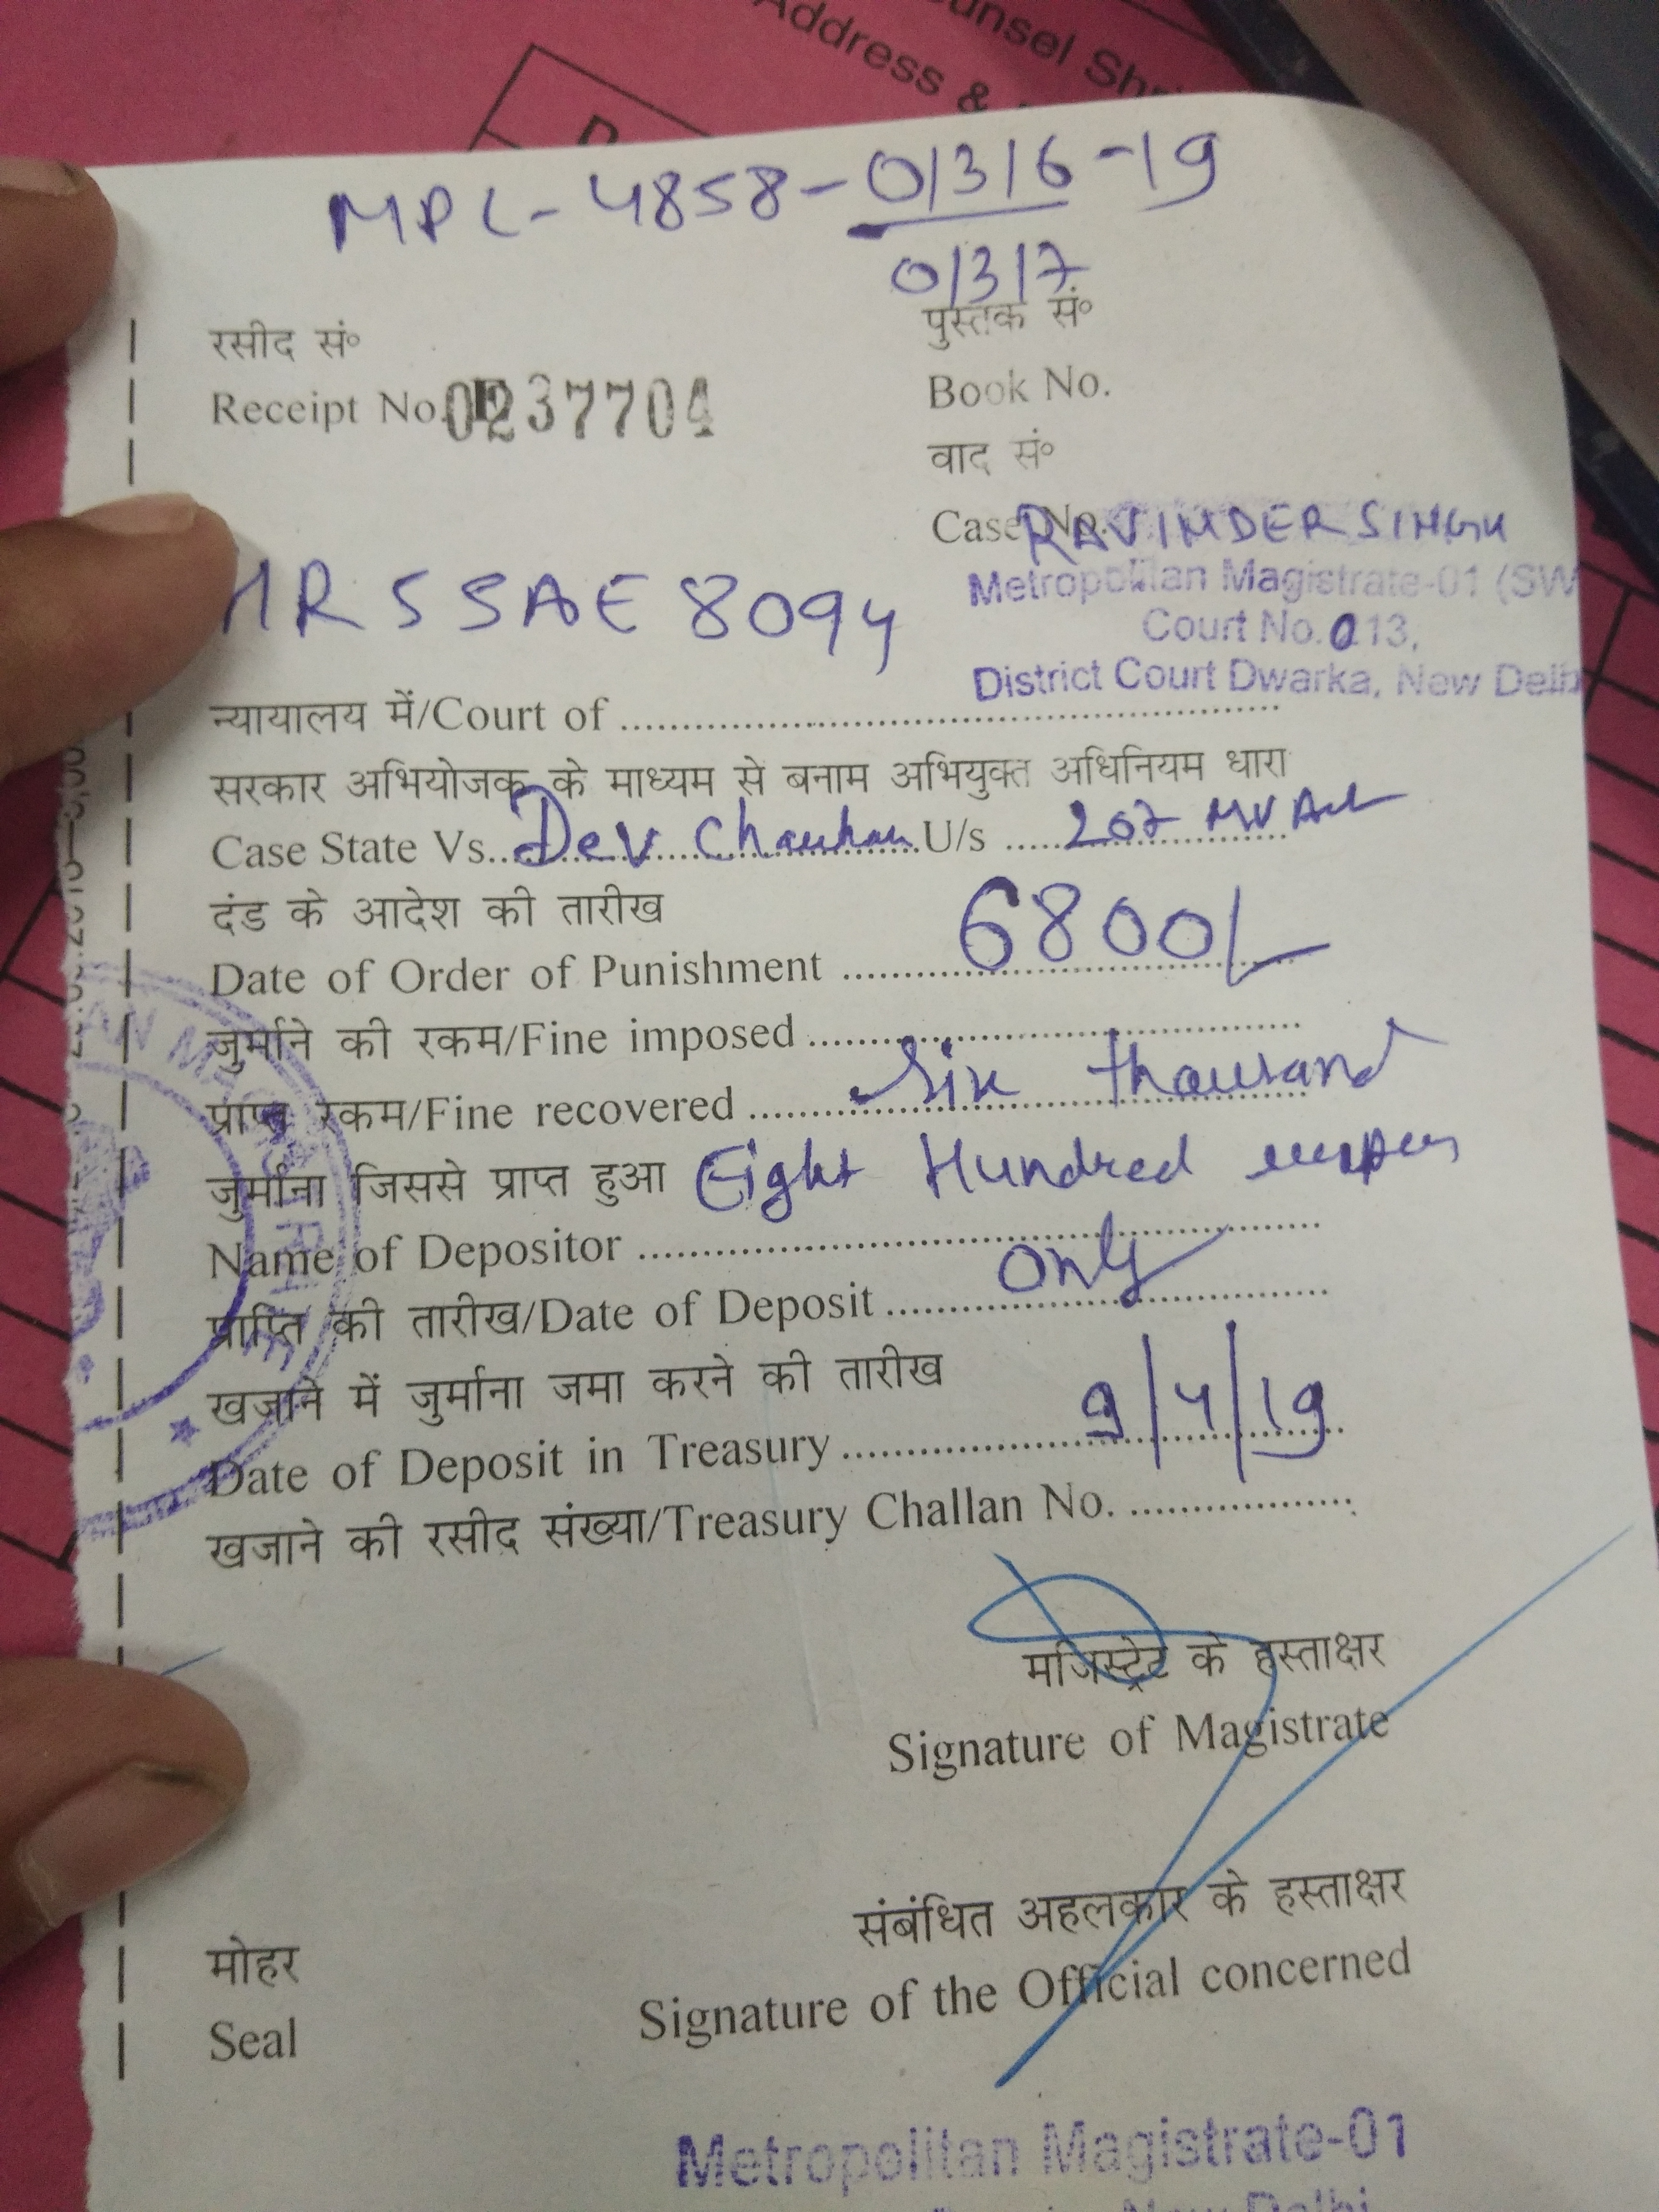 unsel Shri
Address &
MPC-4858-01316-19
01317
रसीद सं०
पुस्तक सं०
Receipt No. 0237704
Book No.
वाद सं०
Case No.
RAVINDER SINGH
Metropolitan Magistrate-01 (SW
Court No. 213,
District Court Dwarka, New Delh
HR 55AE 8094
न्यायालय में/Court of
सरकार अभियोजक के माध्यम से बनाम अभियुक्त अधिनियम धारा
Case State Vs. Dev Chauhan U/s 207 MV Act
दंड के आदेश की तारीख
Date of Order of Punishment 6800/-
जुर्माने की रकम/Fine imposed
प्राप्त रकम/Fine recovered Six thousand
जुर्माना जिससे प्राप्त हुआ Eight Hundred
Name of Depositor
प्राप्ति की तारीख/Date of Deposit only
खजाने में जुर्माना जमा करने की तारीख
Date of Deposit in Treasury 9/4/19
खजाने की रसीद संख्या/Treasury Challan No.
मजिस्ट्रेट के हस्ताक्षर
Signature of Magistrate
संबंधित अहलकार के हस्ताक्षर
Signature of the Official concerned
मोहर
Seal
Metropolitan Magistrate-01
New Delhi